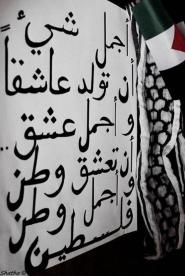 أجمل شيءٌ
أن تولد عاشقاً
و أجمل عشق ..
أن تعشق وطن
و أجمل وطن ..
فلسطين
Shatha